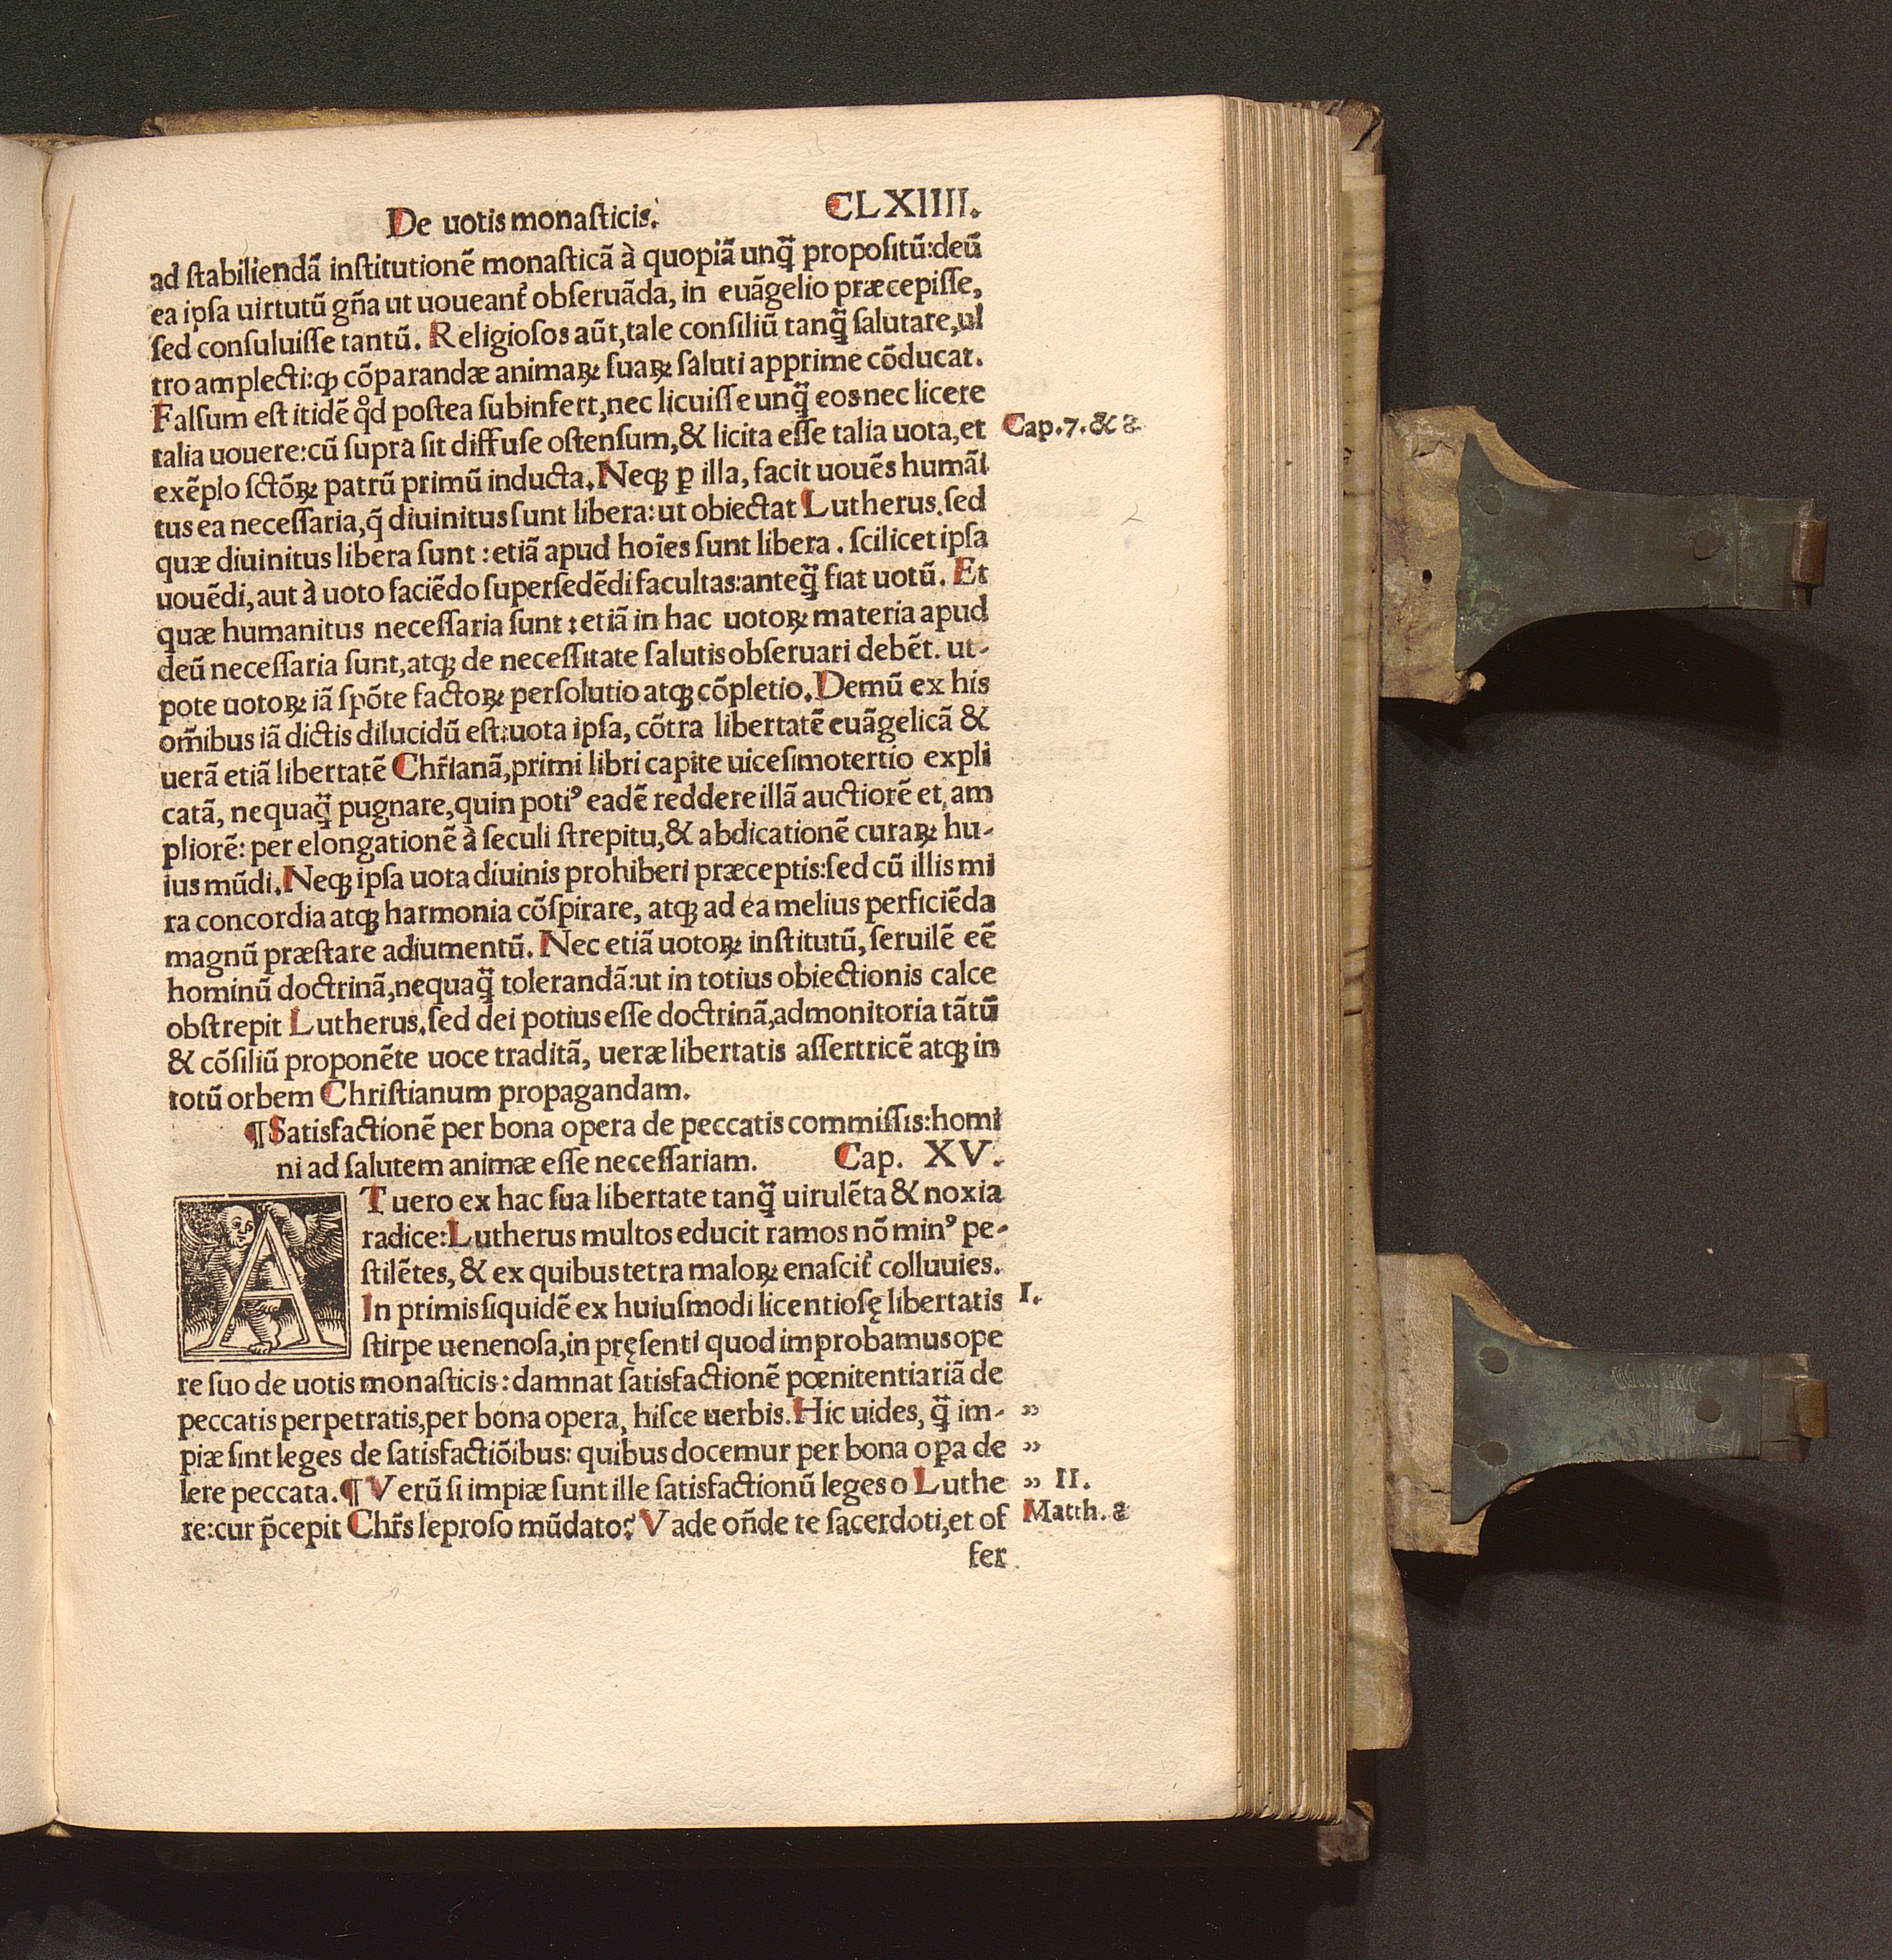 De uotis monaſticis. CLXIIII.
ad ſtabiliendã inſtitutionẽ monaſticã à quopiã unq̃ꝫ propoſitũ:deũ
ea ipſa uirtutũ gña ut uoueant̃ obſeruãda, in euãgelio præcepiſſe,
ſed conſuluiſſe tantũ. Religioſos aũt, tale conſiliũ tanq̃ꝫ ſalutare, ul
tro amplecti:ꝙ cõparandæ animaꝝ ſuaꝝ ſaluti apprime cõducat.
Falſum eſt itidẽ qd̊ poſtea ſubinfert, nec licuiſſe unq̃ꝫ eos nec licere
talia uouere:cũ ſupra sit diffuſe oſtenſum, & licita eſſe talia uota, et
Cap. 7. & 8
exẽplo ſctõꝝ patrũ primũ inducta. Neqꝫ ꝑ illa, facit uouẽs humãi
tus ea neceſſaria, q̃ diuinitus ſunt libera: ut obiectat Lutherus. ſed
quæ diuinitus libera ſunt : etiã apud hoĩes ſunt libera . ſcilicet ipſa
uouẽdi, aut à uoto faciẽdo ſuperſedẽdi facultas:anteq̃ꝫ fiat uotũ. Et
quæ humanitus neceſſaria ſunt : etiã in hac uotoꝝ materia apud
deũ neceſſaria ſunt, atqꝫ de neceſſitate ſalutis obſeruari debẽt. ut-
pote uotoꝝ iã ſpõte factoꝝ perſolutio atqꝫ cõpletio. Demũ ex his
om̃ibus iã dictis dilucidũ eſt:uota ipſa, cõtra libertatẽ euãgelicã &
uerã etiã libertatẽ Chr̃ianã, primi libri capite uiceſimotertio expli
catã, nequaq̃ꝫ pugnare, quin potiꝰ eadẽ reddere illã auctiorẽ et am
pliorẽ: per elongationẽ à ſeculi ſtrepitu, & abdicationẽ curaꝝ hu-
ius mũdi. Neqꝫ ipſa uota diuinis prohiberi præceptis:ſed cũ illis mi
ra concordia atqꝫ harmonia cõſpirare, atqꝫ ad ea melius perficiẽda
magnũ præſtare adiumentũ. Nec etiã uotoꝝ inſtitutũ, ſeruilẽ eẽ
hominũ doctrinã, nequaq̃ꝫ tolerandã:ut in totius obiectionis calce
obſtrepit Lutherus. ſed dei potius eſſe doctrinã, admonitoria tãtũ
& cõſiliũ proponẽte uoce traditã, ueræ libertatis aſſertricẽ atqꝫ in
totũ orbem Chriſtianum propagandam.
¶ Satisfactionẽ per bona opera de peccatis commiſſis:homi
ni ad ſalutem animæ eſſe neceſſariam. Cap. XV.
AT uero ex hac ſua libertate tanq̃ꝫ uirulẽta & noxia
radice:Lutherus multos educit ramos nõ minꝰ pe-
ſtilẽtes, & ex quibus tetra maloꝝ enaſcit̃ colluuies.
In primis ſiquidẽ ex huiuſmodi licentioſę libertatis I.
ſtirpe uenenoſa, in pręſenti quod improbamus ope
re ſuo de uotis monaſticis : damnat ſatisfactionẽ pœnitentiariã de
peccatis perpetratis, per bona opera, hiſce uerbis. Hic uides, q̃ꝫ im- ”
piæ ſint leges de ſatisfactiõibus: quibus docemur per bona oꝑa de ”
lere peccata. ¶ Verũ ſi impiæ ſunt ille ſatisfactionũ leges o Luthe ” II.
re:cur p̃cepit Chr̃s leproſo mũdato? Vade oñde te ſacerdoti, et of Matth. 8
fer